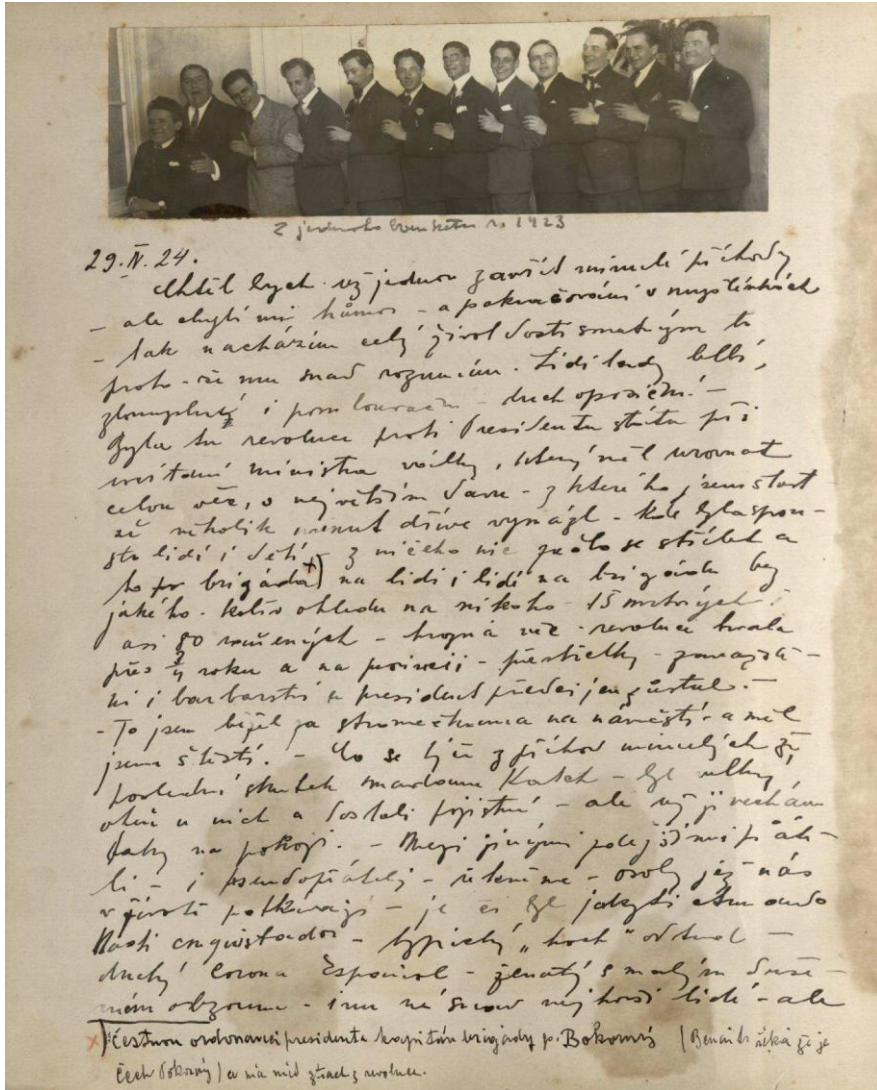 Z jednoho banketu r. 1923
29.IV.24.
Chtěl bych už jednou završit minulé příhody
– ale chybí mi humor – a pokračování v myšlenkách
– tak nacházím celý život dosti smutným
proto že mu snad rozumím. Lidi tady blbí,
i pomlouvační – duch oposiční –
Byla tu revoluce proti Presidentu státu při
uvítání ministra války, který měl urovnat
celou věc, o největším davu – z kterého jsem
několik minut dříve – kde byla spou-
sta lidí i dětí – z ničeho nic začlo se střílet a
to brigáda x) na lidi i lidé na brigádu bez
jakého-koliv ohledu na nikoho – 15 mrtvých i
asi 80 raněných – hrozná věc – revoluce trvala
přes roku a na – přestřelky –
ní i barbarství a president předci jen zůstal. –
– To jsem běžel za na náměstí – a měl
jsem štěstí. – Co se týče z příhod minulých
poslední skutek Katch – byl velký
oheň u nich a dostali pojistné – ale už ji nechám
taky na pokoji. – Mezi jinými přáte-
li – i pseudopřáteli – řekněme – osoby jež nás
v životě potkávají – je či byl jakýsi
Nasti – typický „hoch“
druhý Corona Espaniol – ženatý s malým duše-
vním obzorem – nejhorší lidé – ale
x) čestnou ordonancí presidenta kapitán brigády p. Bokorný (Benari řiká že je
čech Pokorný) a má strach z revoluce.